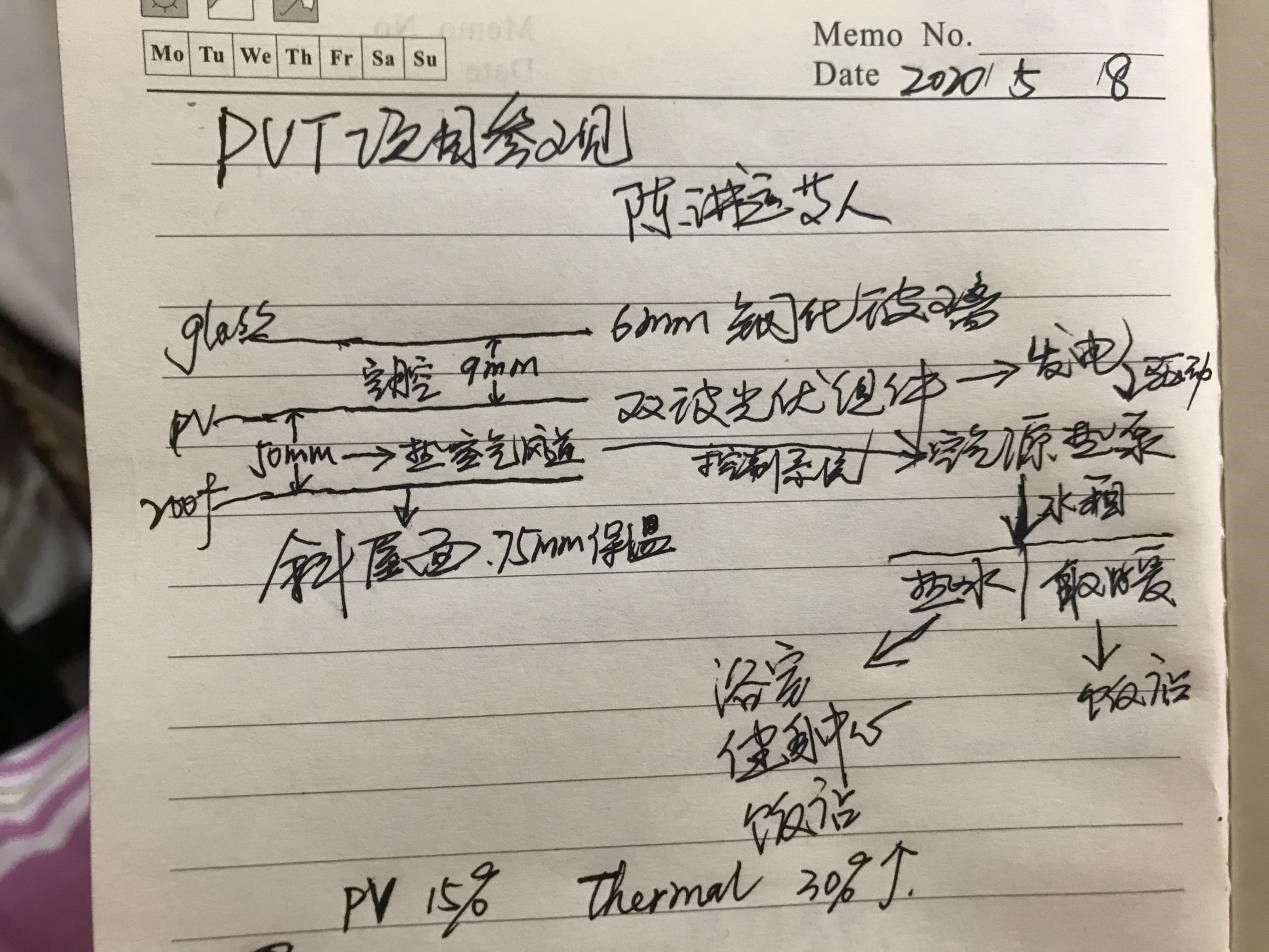 Mo Tu We Th Fr Sa Su
Memo No.
Date 2020/5/8
PVT项目参观
陈
人
glass
6mm 钢化玻璃
空腔 9mm
PV
双玻光伏组件 → 发电 } 驱动
50mm → 热空气风道
控制系统
空气源热泵
roof
水箱
斜屋面.75mm保温
热水
取暖
浴室
饭店
健身中心
饭店
PV 15% Thermal 30%↑.